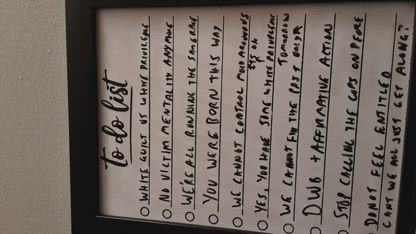 to do list
WHITE GUILT VS WHITE PRIVILEGE
NO VICTIM MENTALITY ANYMORE
WE'RE ALL RUNNING THE SAME RACE
YOU WERE BORN THIS WAY
WE CANNOT CONTROL
YES, YOU HAVE SOME WHITE PRIVILEGE
WE CANNOT FIX THE PAST ONLY TOMORROW
DWB + AFFIRMATIVE ACTION
STOP CALLING THE COPS ON PEOPLE
DO NOT FEEL ENTITLED
CANT WE ALL JUST GET ALONG?